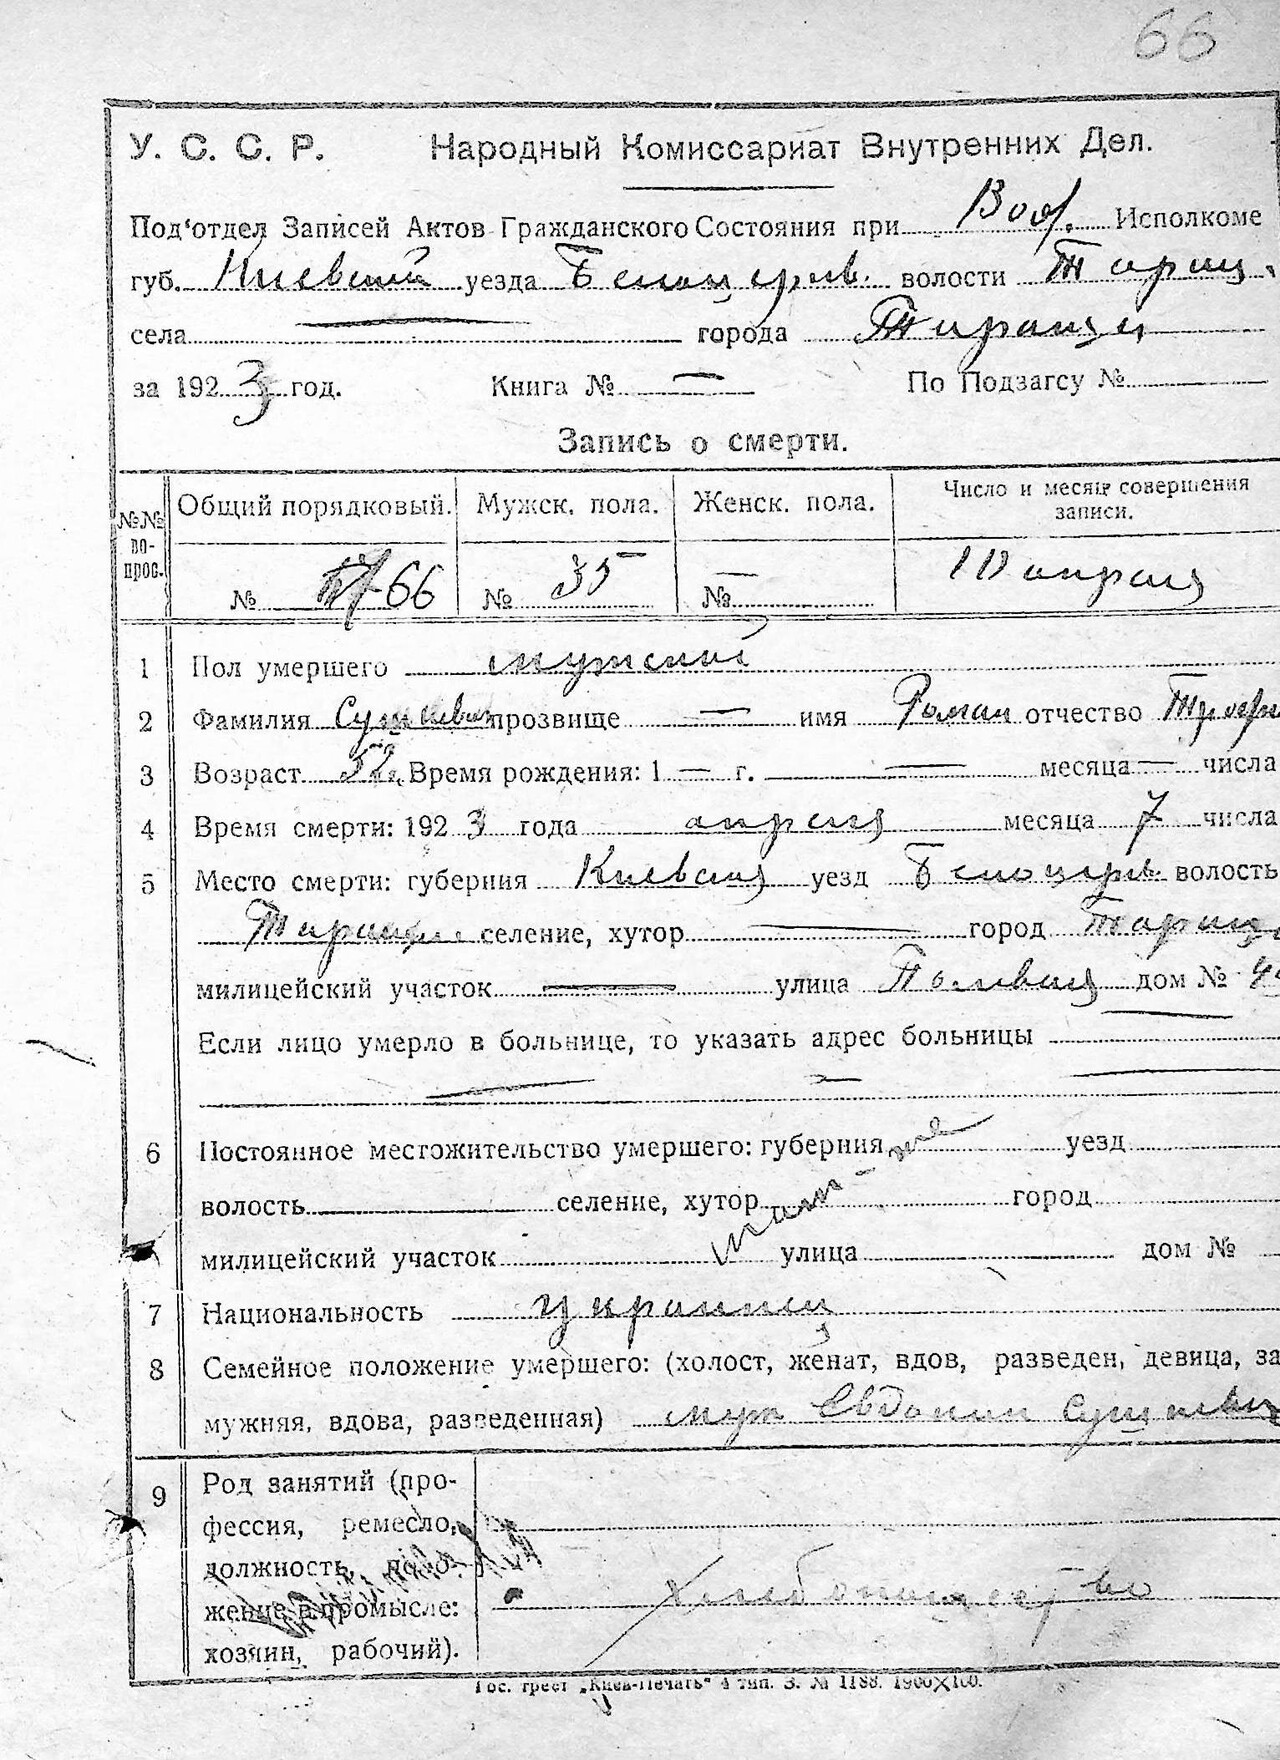 66
У. С. С. Р. Народный Комиссариат Внутренних Дел.
Под'отдел Записей Актов Гражданского Состояния при Вол. Исполкоме
губ. Киевской уезда Белоцерков. волости Таращ.
села города Таращи
за 1923 год. Книга № — По Подзагсу №
Запись о смерти.
№№ вопрос. Общий порядковый. Мужск. пола. Женск. пола. Число и месяц совершения записи.
№ 66 № 35 № — 10 апреля
1 Пол умершего мужской
2 Фамилия прозвище — имя Роман отчество
3 Возраст 52 Время рождения: 1 — г. — месяца — числа
4 Время смерти: 1923 года апреля месяца 7 числа
5 Место смерти: губерния Киевская уезд Белоцерков. волость
селение, хутор — город Таращ
милицейский участок — улица дом №
Если лицо умерло в больнице, то указать адрес больницы —
6 Постоянное местожительство умершего: губерния уезд
волость селение, хутор город
милицейский участок улица дом №
там-же
7 Национальность украинец
8 Семейное положение умершего: (холост, женат, вдов, разведен, девица, за
мужняя, вдова, разведенная) муж Евдокии
9 Род занятий (про-
фессия, ремесло,
должность, поло-
жение в промысле:
хозяин, рабочий).
Хлебопашество
Гос. трест „Киев-Печать" 4 тип. З. № 1188. 1900×100.